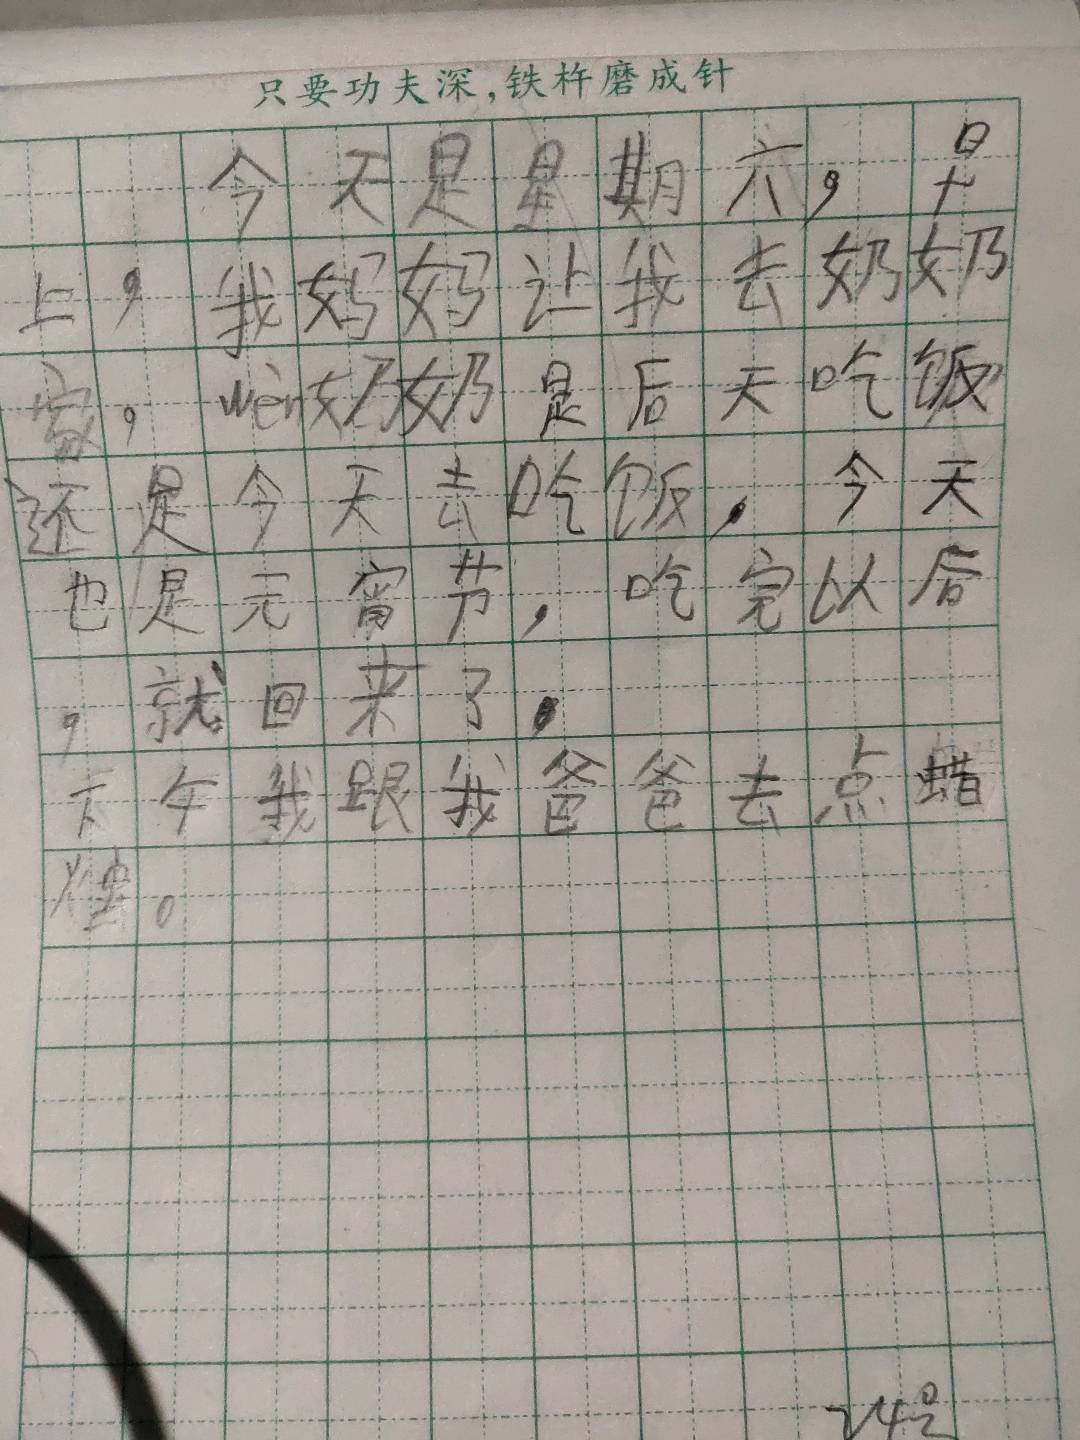 只要功夫深,铁杵磨成针
今天是星期六，早
上，我妈妈让我去奶奶
家，wèn奶奶是后天吃饭
还是今天去吃饭，今天
也是元宵节，吃完以后
，就回来了。
下午我跟我爸爸去点蜡
。